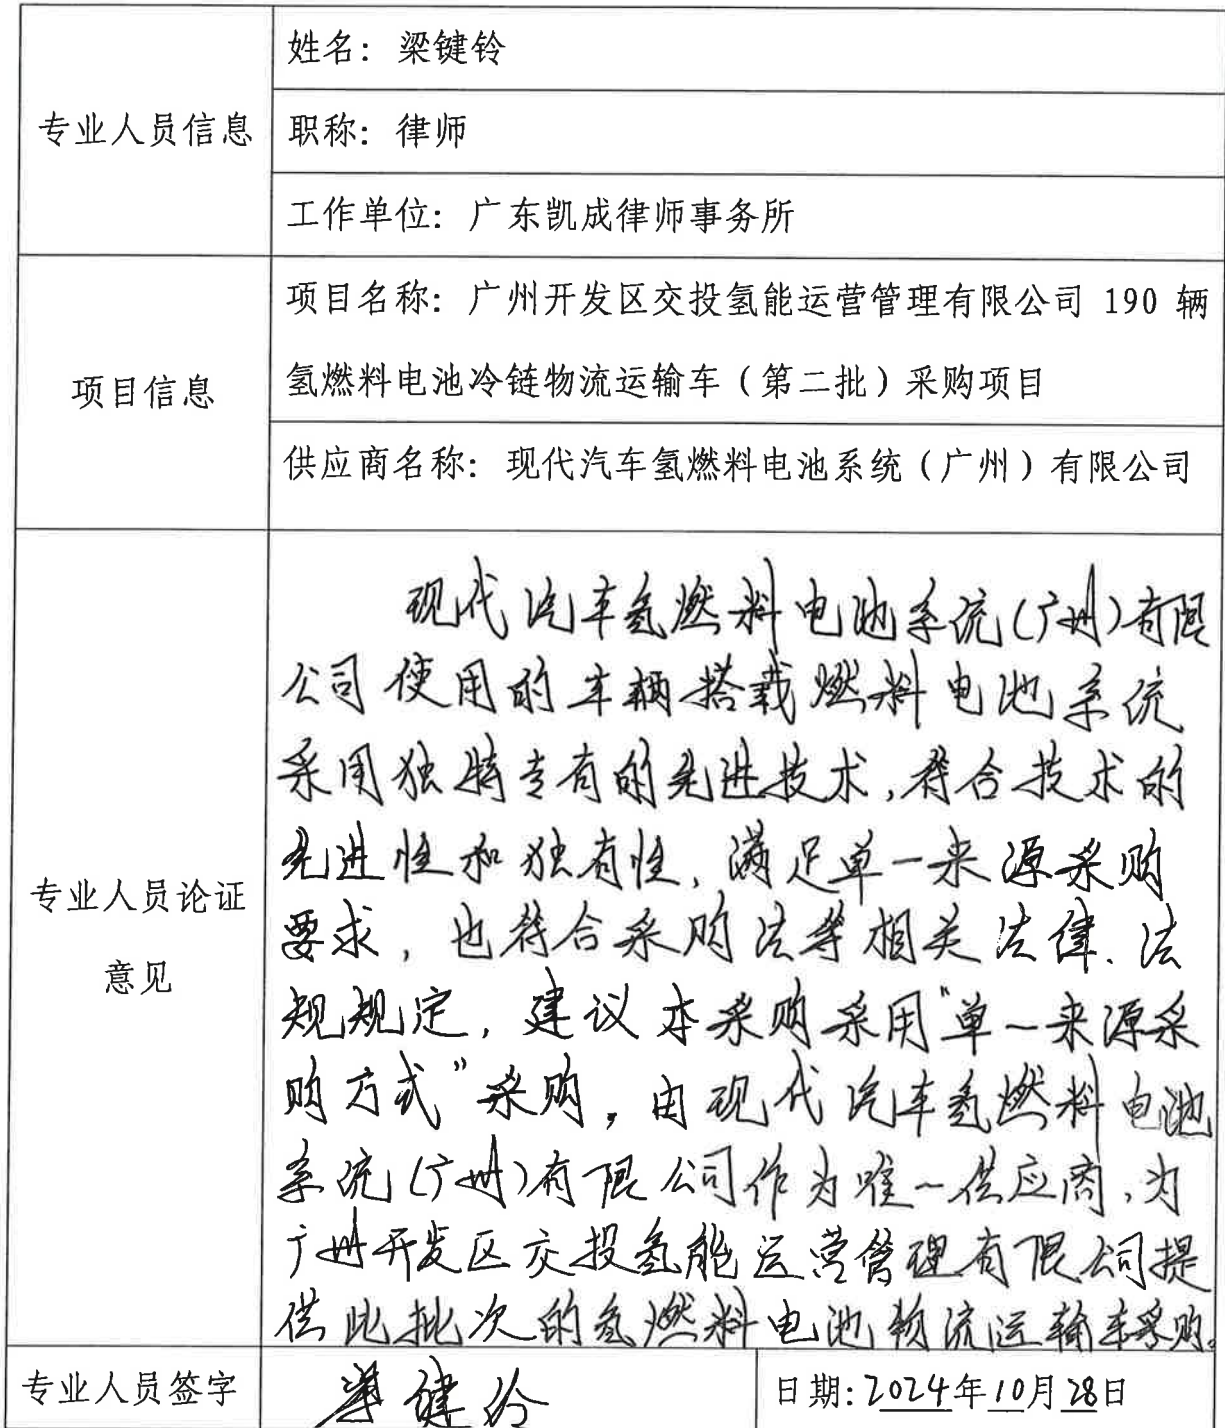 姓名：梁键铃
专业人员信息
职称：律师
工作单位：广东凯成律师事务所
项目名称：广州开发区交投氢能运营管理有限公司 190 辆
氢燃料电池冷链物流运输车（第二批）采购项目
项目信息
供应商名称：现代汽车氢燃料电池系统（广州）有限公司
现代汽车氢燃料电池系统(广州)有限
公司使用的车辆搭载燃料电池系统
采用独特专有的先进技术,符合技术的
先进性和独有性,满足单一来源采购
专业人员论证
意见
要求,也符合采购法等相关法律、法
规规定,建议本采购采用"单一来源采
购方式"采购。由现代汽车氢燃料电池
系统(广州)有限公司作为唯一供应商,为
广州开发区交投氢能运营管理有限公司提
供此批次的氢燃料电池物流运输车采购。
专业人员签字
梁键铃
日期:2024年10月28日